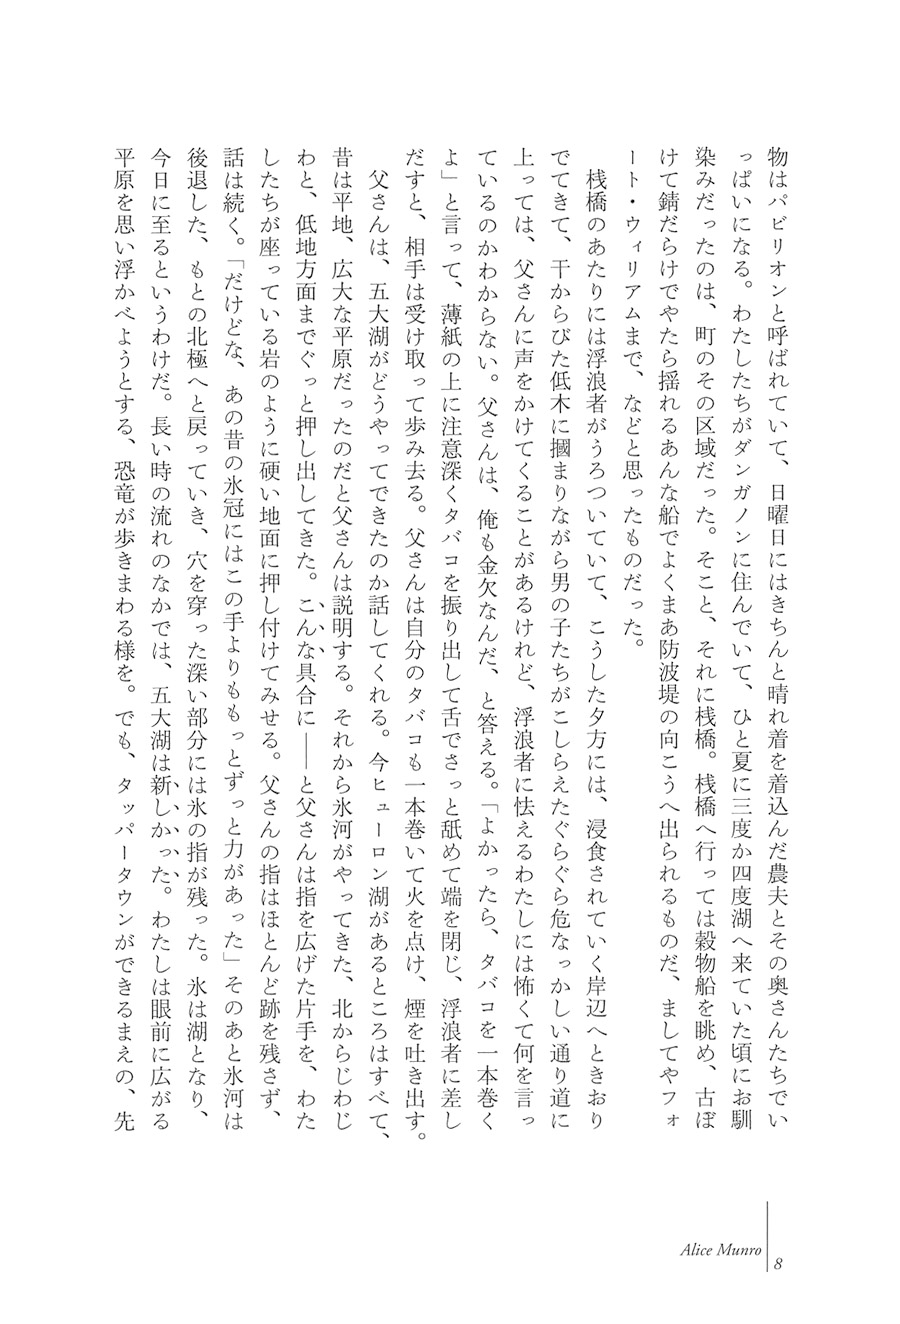 物はパビリオンと呼ばれていて、日曜日にはきちんと晴れ着を着込んだ農夫とその奥さんたちでい
っぱいになる。わたしたちがダンガノンに住んでいて、ひと夏に三度か四度湖へ来ていた頃にお馴
染みだったのは、町のその区域だった。そこと、それに桟橋。桟橋へ行っては穀物船を眺め、古ぼ
けて錆だらけでやたら揺れるあんな船でよくまあ防波堤の向こうへ出られるものだ、ましてやフォ
ート・ウィリアムまで、などと思ったものだった。
桟橋のあたりには浮浪者がうろついていて、こうした夕方には、浸食されていく岸辺へときおり
でてきて、干からびた低木に摑まりながら男の子たちがこしらえたぐらぐら危なっかしい通り道に
上っては、父さんに声をかけてくることがあるけれど、浮浪者に怯えるわたしには怖くて何を言っ
ているのかわからない。父さんは、俺も金欠なんだ、と答える。「よかったら、タバコを一本巻く
よ」と言って、薄紙の上に注意深くタバコを振り出して舌でさっと舐めて端を閉じ、浮浪者に差し
だすと、相手は受け取って歩み去る。父さんは自分のタバコも一本巻いて火を点け、煙を吐き出す。
父さんは、五大湖がどうやってできたのか話してくれる。今ヒューロン湖があるところはすべて、
昔は平地、広大な平原だったのだと父さんは説明する。それから氷河がやってきた、北からじわじ
わと、低地方面までぐっと押し出してきた。こんな具合に――と父さんは指を広げた片手を、わた
したちが座っている岩のように硬い地面に押し付けてみせる。父さんの指はほとんど跡を残さず、
話は続く。「だけどな、あの昔の氷冠にはこの手よりももっとずっと力があった」そのあと氷河は
後退した、もとの北極へと戻っていき、穴を穿った深い部分には氷の指が残った。氷は湖となり、
今日に至るというわけだ。長い時の流れのなかでは、五大湖は新しかった。わたしは眼前に広がる
平原を思い浮かべようとする、恐竜が歩きまわる様を。でも、タッパータウンができるまえの、先
Alice Munro
8